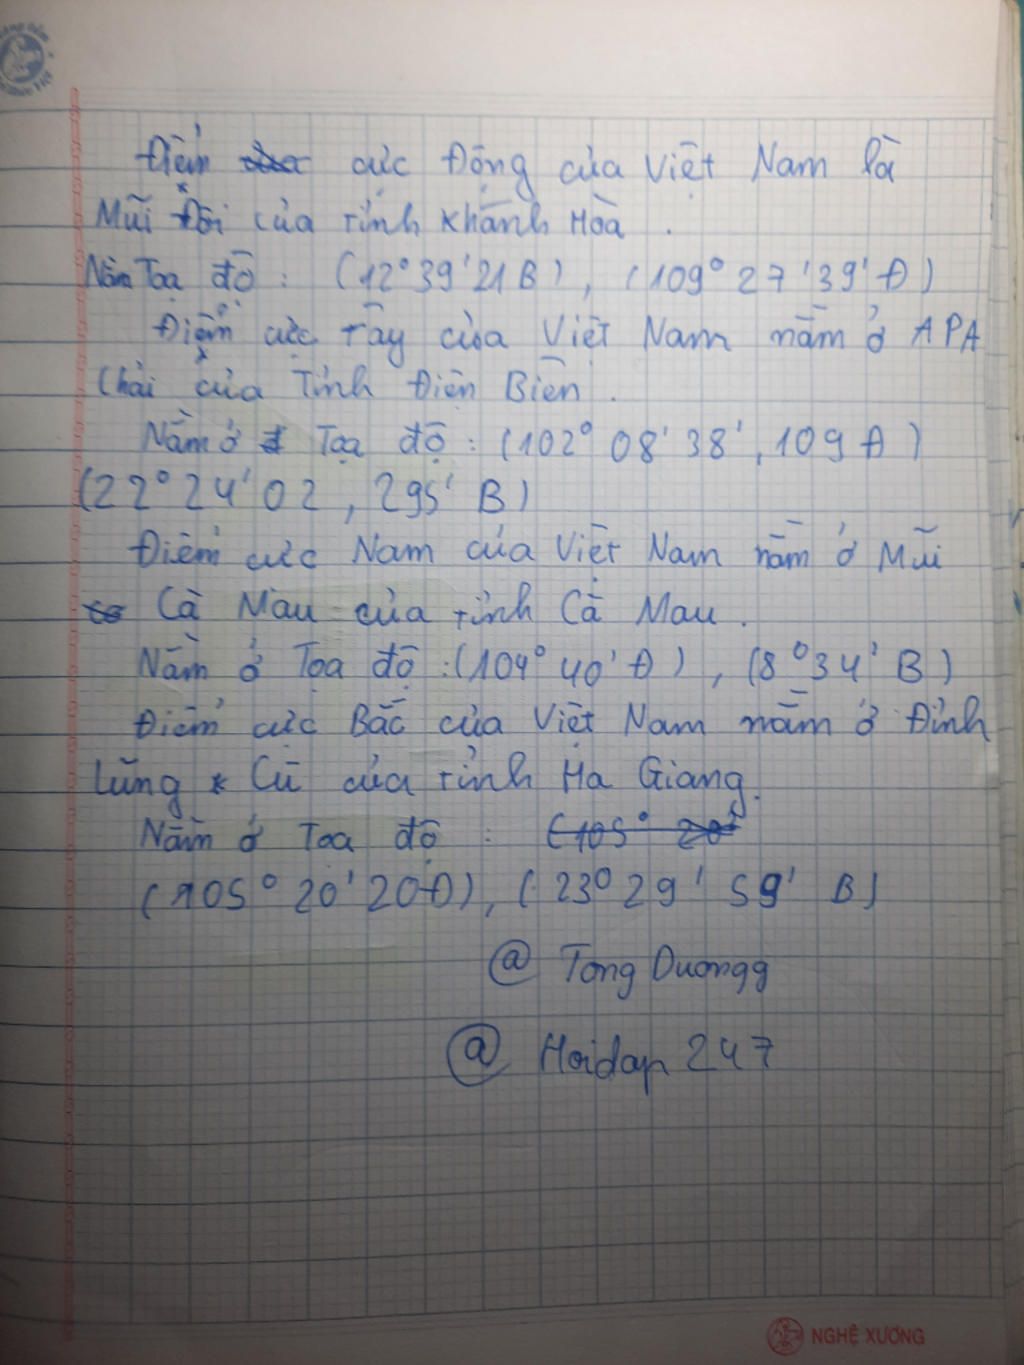 Điểm cực Đông của Việt Nam là
Mũi Đôi của tỉnh Khánh Hoà .
Nằm Toạ độ : (12° 39' 21 B) , (109° 27' 39' Đ)
Điểm cực Tây của Việt Nam nằm ở APA
Chải của Tỉnh Điện Biên .
Nằm ở Toạ độ : (102° 08' 38' , 109 Đ)
(22° 24' 02 , 295' B)
Điểm cực Nam của Việt Nam nằm ở Mũi
Cà Mau của tỉnh Cà Mau .
Nằm ở Toạ độ : (104° 40' Đ) , (8° 34' B)
Điểm cực Bắc của Việt Nam nằm ở Đỉnh
Lũng Cú của tỉnh Ha Giang.
Nằm ở Toạ độ : (105° 20'
(105° 20' 20 Đ) , (23° 29' 59' B)
@ Tong Duongg
@ Hoidap 247
NGHỆ XƯƠNG